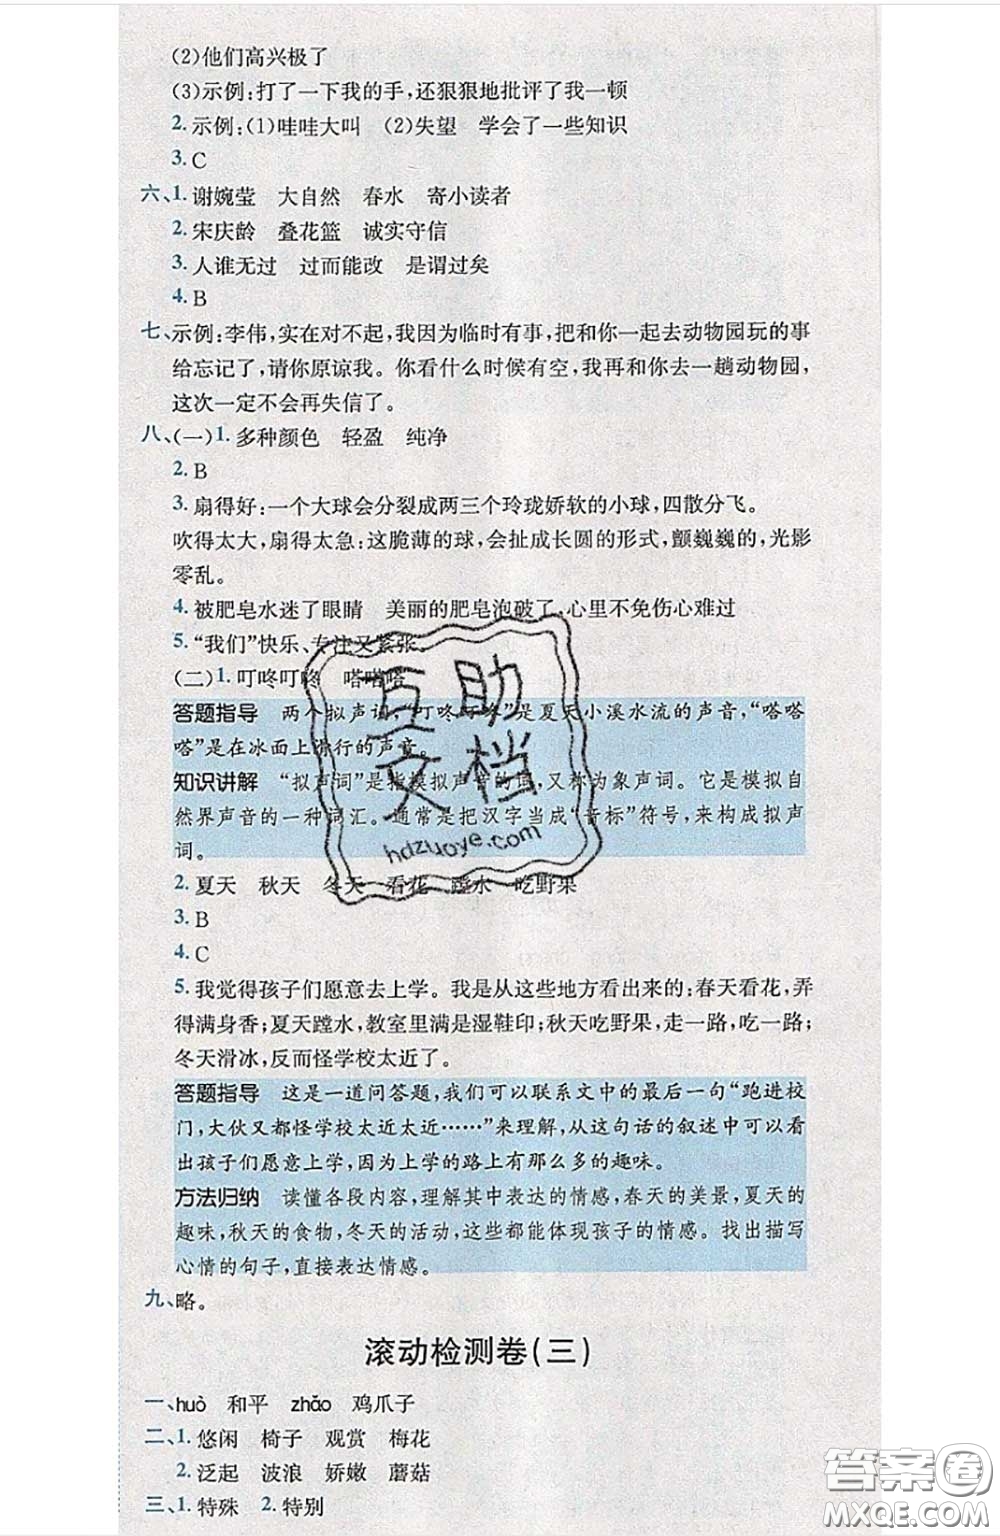 (2)他们高兴极了
(3)示例:打了一下我的手,还狠狠地批评了我一顿
2. 示例:(1)哇哇大叫 (2)失望 学会了一些知识
3. C
六、1. 谢婉莹 大自然 春水 寄小读者
2. 宋庆龄 叠花篮 诚实守信
3. 人谁无过 过而能改 是谓过矣
4. B
七、示例:李伟,实在对不起,我因为临时有事,把和你一起去动物园玩的事
给忘记了,请你原谅我。你看什么时候有空,我再和你去一趟动物园,
这次一定不会再失信了。
八、(一)1. 多种颜色 轻盈 纯净
2. B
3. 扇得好:一个大球会分裂成两三个玲珑娇软的小球,四散分飞。
吹得太大,扇得太急:这脆薄的球,会扯成长圆的形式,颤巍巍的,光影
零乱。
4. 被肥皂水迷了眼睛 美丽的肥皂泡破了,心里不免伤心难过
5. “我们”快乐、专注又紧张。
(二)1. 叮咚叮咚 嗒嗒嗒
答题指导 两个拟声词,“叮咚叮咚”是夏天小溪水流的声音,“嗒嗒
嗒”是在冰面上滑行的声音。
知识讲解 “拟声词”是指模拟声音的词,又称为象声词。它是模拟自
然界声音的一种词汇。通常是把汉字当成“音标”符号,来构成拟声
词。
2. 夏天 秋天 冬天 看花 蹚水 吃野果
3. B
4. C
5. 我觉得孩子们愿意去上学。我是从这些地方看出来的:春天看花,弄
得满身香;夏天蹚水,教室里满是湿鞋印;秋天吃野果,走一路,吃一路;
冬天滑冰,反而怪学校太近了。
答题指导 这是一道问答题,我们可以联系文中的最后一句“跑进校
门,大伙又都怪学校太近太近……”来理解,从这句话的叙述中可以看
出孩子们愿意上学,因为上学的路上有那么多的趣味。
方法归纳 读懂各段内容,理解其中表达的情感,春天的美景,夏天的
趣味,秋天的食物,冬天的活动,这些都能体现孩子的情感。找出描写
心情的句子,直接表达情感。
九、略。
滚动检测卷(三)
一、huò 和平 zhǎo 鸡爪子
二、1. 悠闲 椅子 观赏 梅花
2. 泛起 波浪 娇嫩 蘑菇
三、1. 特殊 2. 特别
互助
文档
hdzuoye.com
答案圈
MXQE.COM